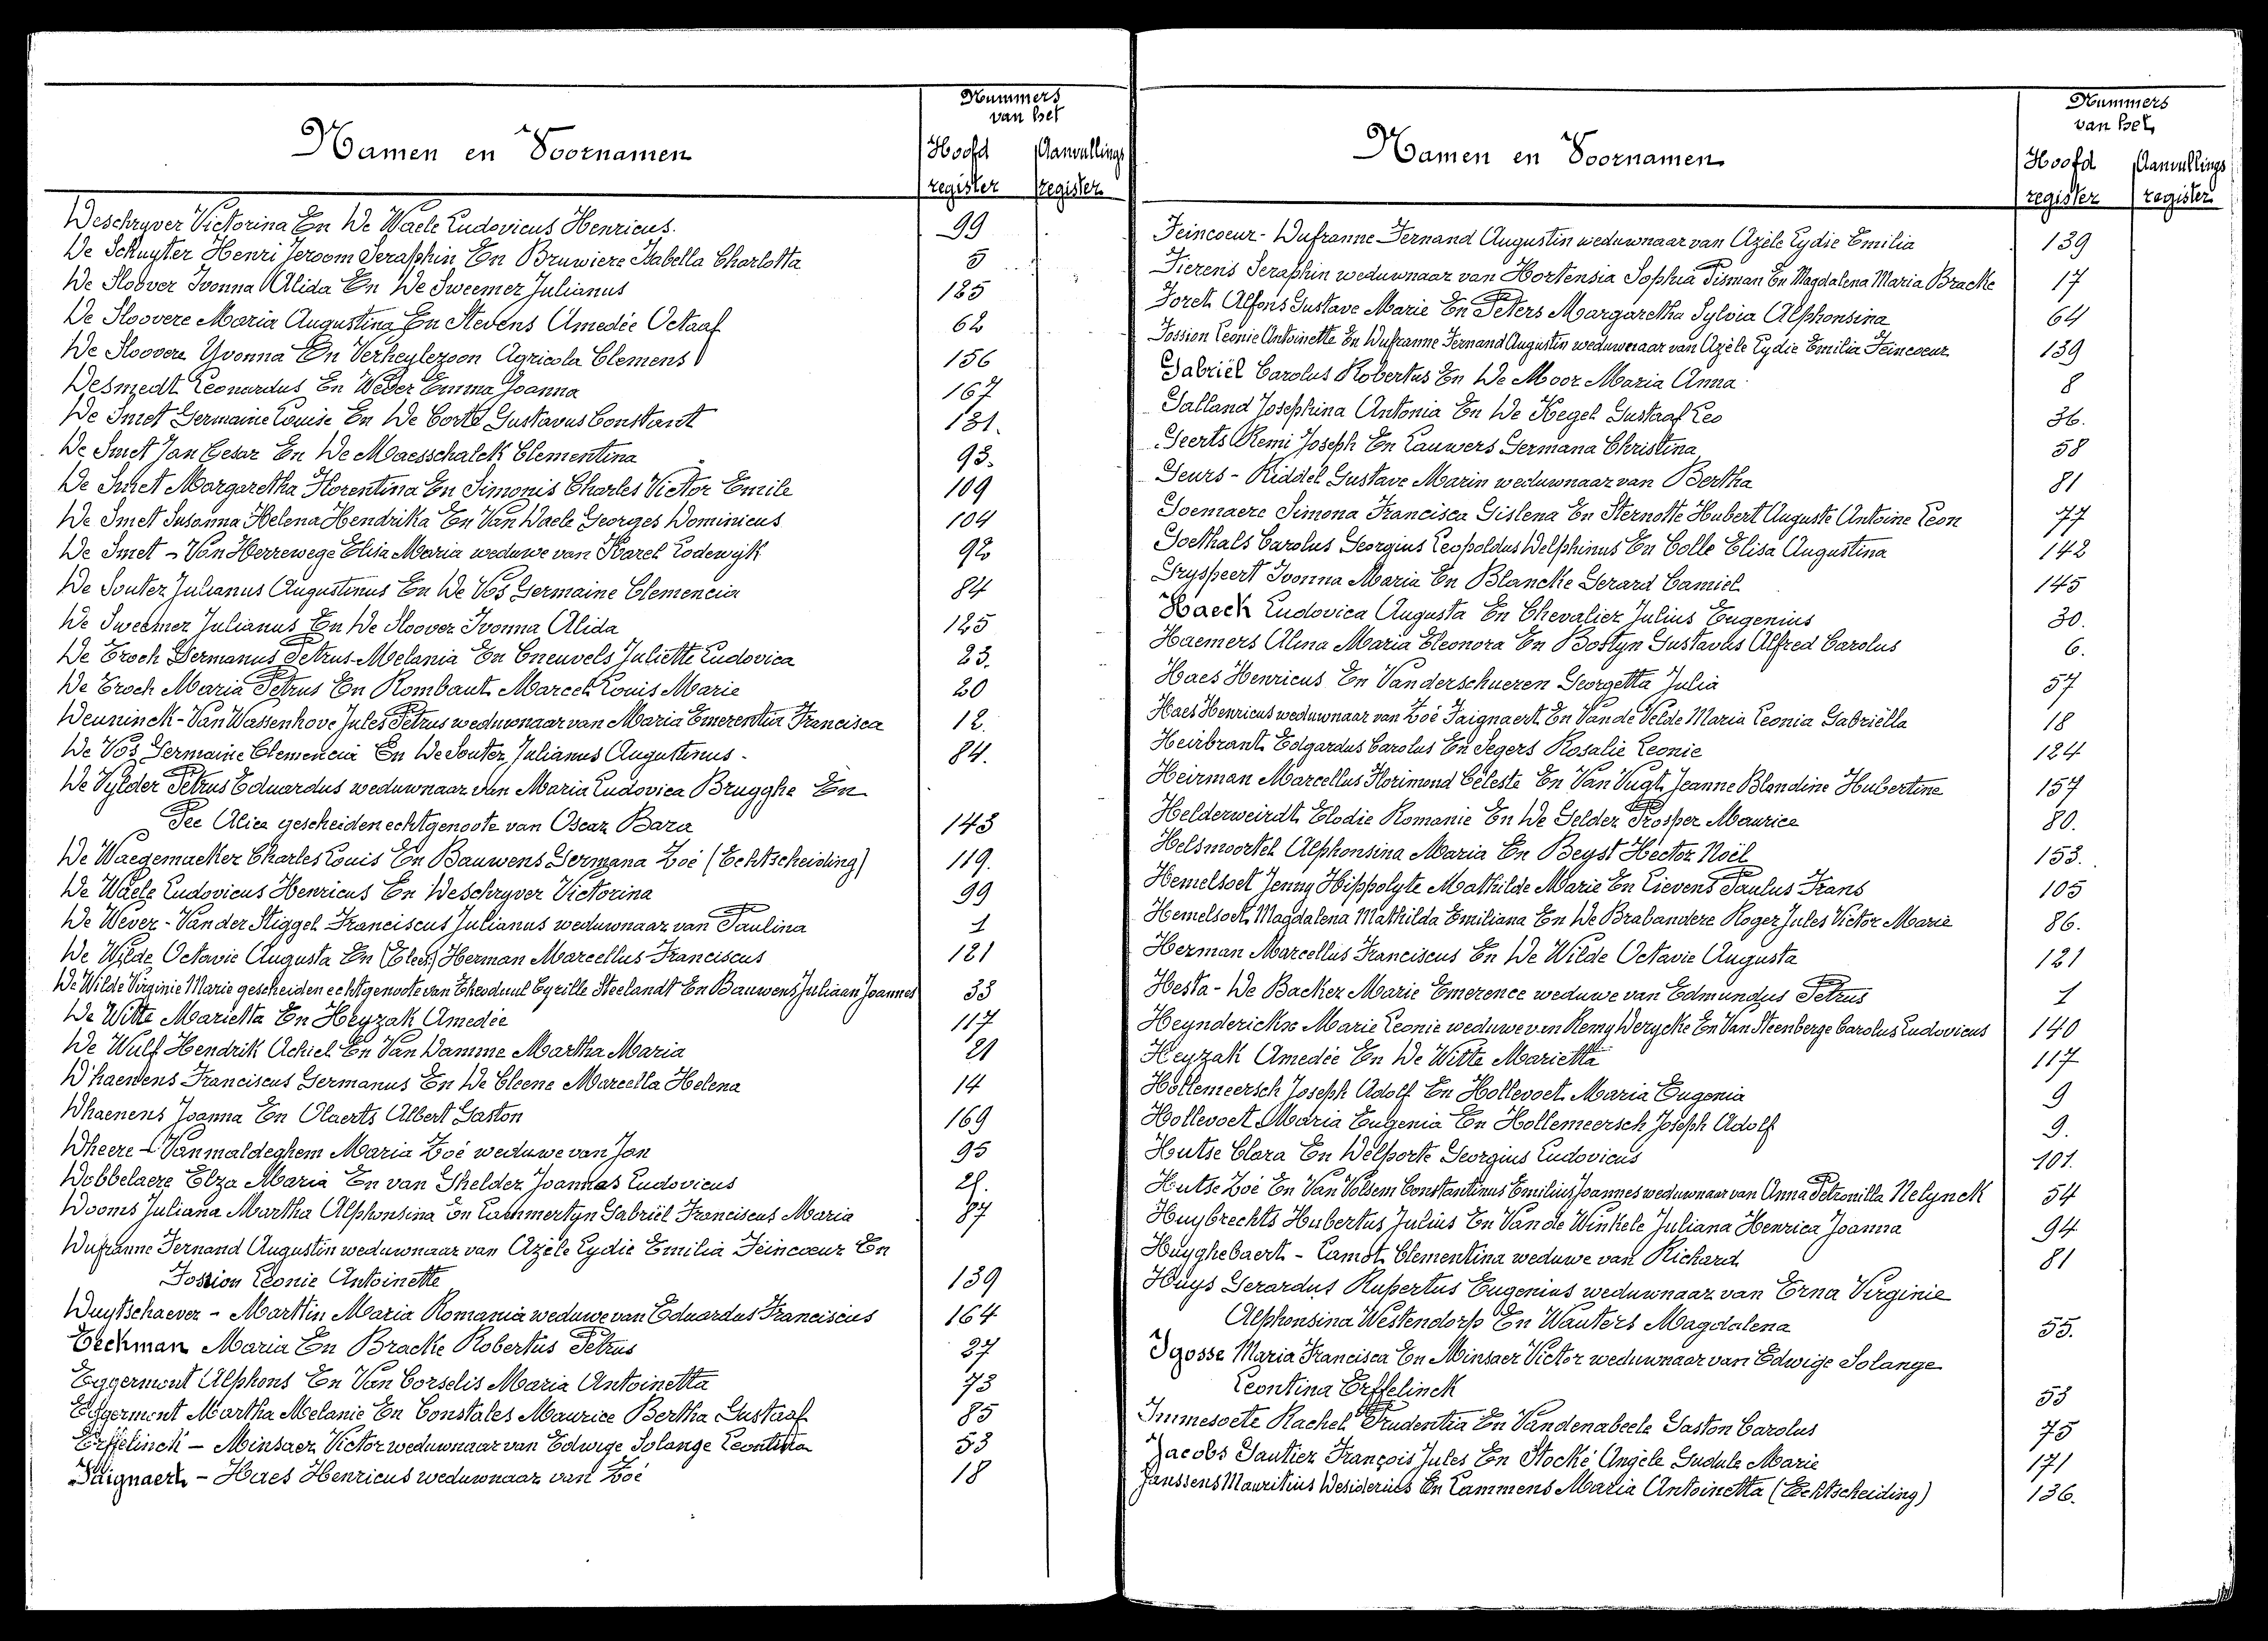 Namen en Voornamen
Nummers
van het
Hoofd register
Aanvullings register
Deschryver Victorina En De Waele Ludovicus Henricus. 99
De Schuyter Henri Jeroom Seraphin En Bruwiere Isabella Charlotta 5
De Sloover Ivonna Alida En De Sweemer Julianus 125
De Sloovere Maria Augustina En Stevens Amedée Octaaf 62
De Sloovere Yvonna En Verheylezoon Agricola Clemens 156
Desmedt Leonardus En Weber Emma Joanna 167
De Smet Germaine Louise En De Corte Gustavus Constant 131.
De Smet Jan Cesar En De Maesschalck Clementina 93.
De Smet Margaretha Florentina En Simonis Charles Victor Emile 109
De Smet Susanna Helena Hendrika En Van Daele Georges Dominicus 104
De Smet - Van Herrewege Elisa Maria weduwe van Karel Lodewijk 92
De Souter Julianus Augustinus En De Vos Germaine Clemencia 84
De Sweemer Julianus En De Sloover Ivonna Alida 125
De Troch Germanus Petrus-Melania En Cneuvels Juliette Ludovica 23.
De Troch Maria Petrus En Rombaut Marcel Louis Marie 20
Deuninck - Van Wassenhove Jules Petrus weduwnaar van Maria Emerentia Francisca 12.
De Vos Germaine Clemencia En De Souter Julianus Augustinus - 84.
De Vylder Petrus Eduardus weduwnaar van Maria Ludovica Brugghe En
Pee Alice gescheiden echtgenoote van Oscar Bara 143
De Waegemaeker Charles Louis En Bauwens Germana Zoé (Echtscheiding) 119.
De Waele Ludovicus Henricus En Deschryver Victorina 99
De Wever - Van der Stiggel Franciscus Julianus weduwnaar van Paulina 1
De Wilde Octavie Augusta En Herman Marcellus Franciscus 121
De Wilde Virginie Marie gescheiden echtgenoote van Theoduul Cyrille Steelandt En Bauwens Juliaan Joannes 33
De Witte Marietta En Heyzak Amedée 117
De Wulf Hendrik Achiel En Van Damme Martha Maria 21
D'haenens Franciscus Germanus En De Cleene Marcella Helena 14
Dhaenens Joanna En Olaerts Albert Gaston 169
Dheere - Vanmaldeghem Maria Zoé weduwe van Jan 95
Dobbelaere Elza Maria En van Ghelder Joannes Ludovicus
Dooms Juliana Martha Alphonsina En Lammertyn Gabriël Franciscus Maria 87
Dufranne Fernand Augustin weduwnaar van Azèle Lydie Emilia Feincoeur En
Fossion Leonie Antoinette 139
Duytschaever - Martin Maria Romania weduwe van Eduardus Franciscus 164
Eeckman Maria En Bracke Robertus Petrus 27
Eggermont Alphons En Van Corselis Maria Antoinetta 73
Eggermont Martha Melanie En Constales Maurice Bertha Gustaaf 85
Erffelinck - Minsaer Victor weduwnaar van Edwige Solange Leontina 53
Faignaert - Haes Henricus weduwnaar van Zoé 18
Namen en Voornamen
Nummers
van het
Hoofd register
Aanvullings register
Feincoeur - Dufranne Fernand Augustin weduwnaar van Azèle Lydie Emilia 139
Fierens Seraphin weduwnaar van Hortensia Sophia Pisman En Magdalena Maria Bracke 17
Foret Alfons Gustave Marie En Peters Margaretha Sylvia Alphonsina 64
Fossion Leonie Antoinette En Dufranne Fernand Augustin weduwenaar van Azèle Lydie Emilia Feincoeur 139
Gabriël Carolus Robertus En De Moor Maria Anna 8
Galland Josephina Antonia En De Kegel Gustaaf Leo 36.
Geerts Remi Joseph En Lauwers Germana Christina 58
Geurs - Riddel Gustave Marin weduwnaar van Bertha 81
Goemaere Simona Francisca Gislena En Sternotte Hubert Auguste Antoine Leon 77
Goethals Carolus Georgius Leopoldus Delphinus En Colle Elisa Augustina 142
Gryspeert Ivonna Maria En Blancke Gerard Camiel 145
Haeck Ludovica Augusta En Chevalier Julius Eugenius 30.
Haemers Alina Maria Eleonora En Bostyn Gustavus Alfred Carolus 6.
Haes Henricus En Vanderschueren Georgetta Julia 57
Haes Henricus weduwnaar van Zoé Faignaert En Van de Velde Maria Leonia Gabriëlla 18
Heirbrant Edgardus Carolus En Segers Rosalie Leonie 124
Heirman Marcellus Florimond Céleste En Van Vugt Jeanne Blandine Hubertine 157
Helderweirdt Elodie Romanie En De Gelder Prosper Maurice 80.
Helsmoortel Alphonsina Maria En Beyst Hector Noël 153.
Hemelsoet Jenny Hippolyte Mathilde Marie En Lievens Paulus Frans 105
Hemelsoet Magdalena Mathilda Emiliana En De Brabandere Roger Jules Victor Marie 86.
Herman Marcellus Franciscus En De Wilde Octavie Augusta 121
Hesta - De Backer Marie Emerence weduwe van Edmundus Petrus 1
Heynderickx Marie Leonie weduwe van Remy Derycke En Van Steenberge Carolus Ludovicus 140
Heyzak Amedée En De Witte Marietta 117
Hollemeersch Joseph Adolf En Hollevoet Maria Eugenia 9
Hollevoet Maria Eugenia En Hollemeersch Joseph Adolf 9.
Hutse Clara En Delporte Georgius Ludovicus 101.
Hutse Zoé En Van Volsem Constantinus Emilius Joannes weduwnaar van Anna Petronilla Nelynck 54
Huybrechts Hubertus Julius En Van de Winkele Juliana Henrica Joanna 94
Huyghebaert - Lamot Clementina weduwe van Richard 81
Huys Gerardus Rupertus Eugenius weduwnaar van Erna Virginie
Alphonsina Westendorp En Wauters Magdalena 55.
Igosse Maria Francisca En Minsaer Victor weduwnaar van Edwige Solange
Leontina Erffelinck 53
Immesoete Rachel Prudentia En Vandenabeele Gaston Carolus 75
Jacobs Gautier François Jules En Stocké Angèle Gudule Marie 171
Janssens Mauritius Desiderius En Lammens Maria Antoinetta (Echtscheiding) 136.